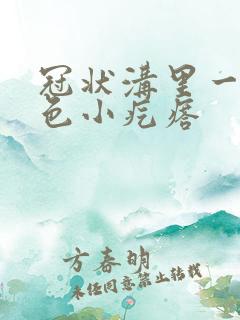 冠状沟里一
色小疙瘩
方春明
未经同意禁止转载